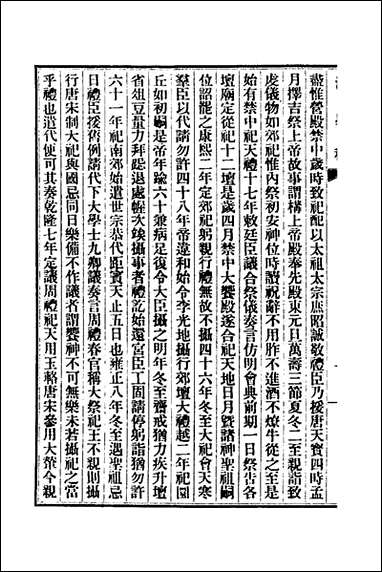 盡惟營殿禁中歲時致祀配以太祖太宗庶昭誠敬禮臣乃援唐天寶四時孟
月擇吉祭上帝故事謂構上帝殿奉先殿東元旦萬壽三節夏冬二至親詣致
虔儀物如郊祀惟內祭初安神位時讀祝辭不用胙不進酒不燎牛從之至是
始有禁中祀天禮十七年敕廷臣議合祭儀奏言仿明會典前期一日祭告各
壇廟定從祀十二壇是歲四月禁中大饗殿遂合祀天地日月暨諸神聖祖嗣
位詔罷之康熙二年定郊祀躬親行禮無故不攝四十六年冬至大祀會天寒
羣臣以代請勿許四十八年帝違和始令李光地攝行郊壇大禮越二年祀圜
丘如初嗣是帝年踰六十兼病足復令大臣攝之明年冬至齋戒猶力疾升壇
省俎豆量力拜跽退處幄次竢攝事者禮訖始還宮臣工固請停躬詣猶勿許
六十一年祀南郊始遣世宗恭代距賓天止五日也雍正八年冬至遇聖祖忌
日禮臣援舊例請代下大學士九卿議奏言周禮春官稱大祭祀王不親則攝
行唐宋制大祀與國忌同日樂備不作議者謂饗神不可無樂未若攝祀之當
乎禮也遣代便可其奏乾隆七年定議周禮祀天用玉輅唐宋參用大輦今親